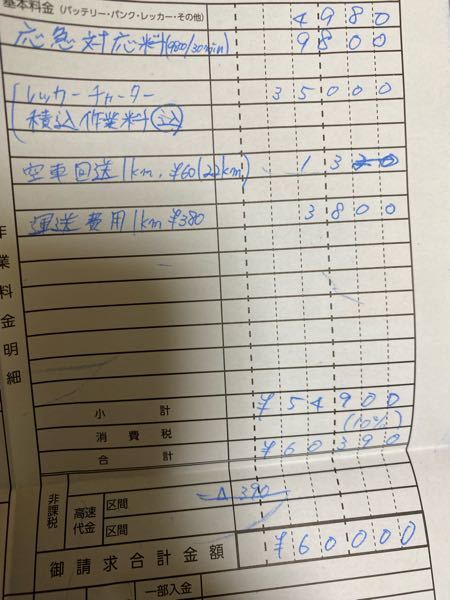 基本料金 (バッテリー・パンク・レッカー・その他) 4980
応急対応料(980/30min) 9800
レッカーチャーター 35000
積込作業料込
空車回送1km、¥60(22km) 1320
運送費用1km ¥380 3800
作業料金明細
小計 ¥54900
消費税 (10%)
合計 ¥60390
非課税 高速代金 区間 △390
区間
御請求合計金額 ¥60000
一部入金